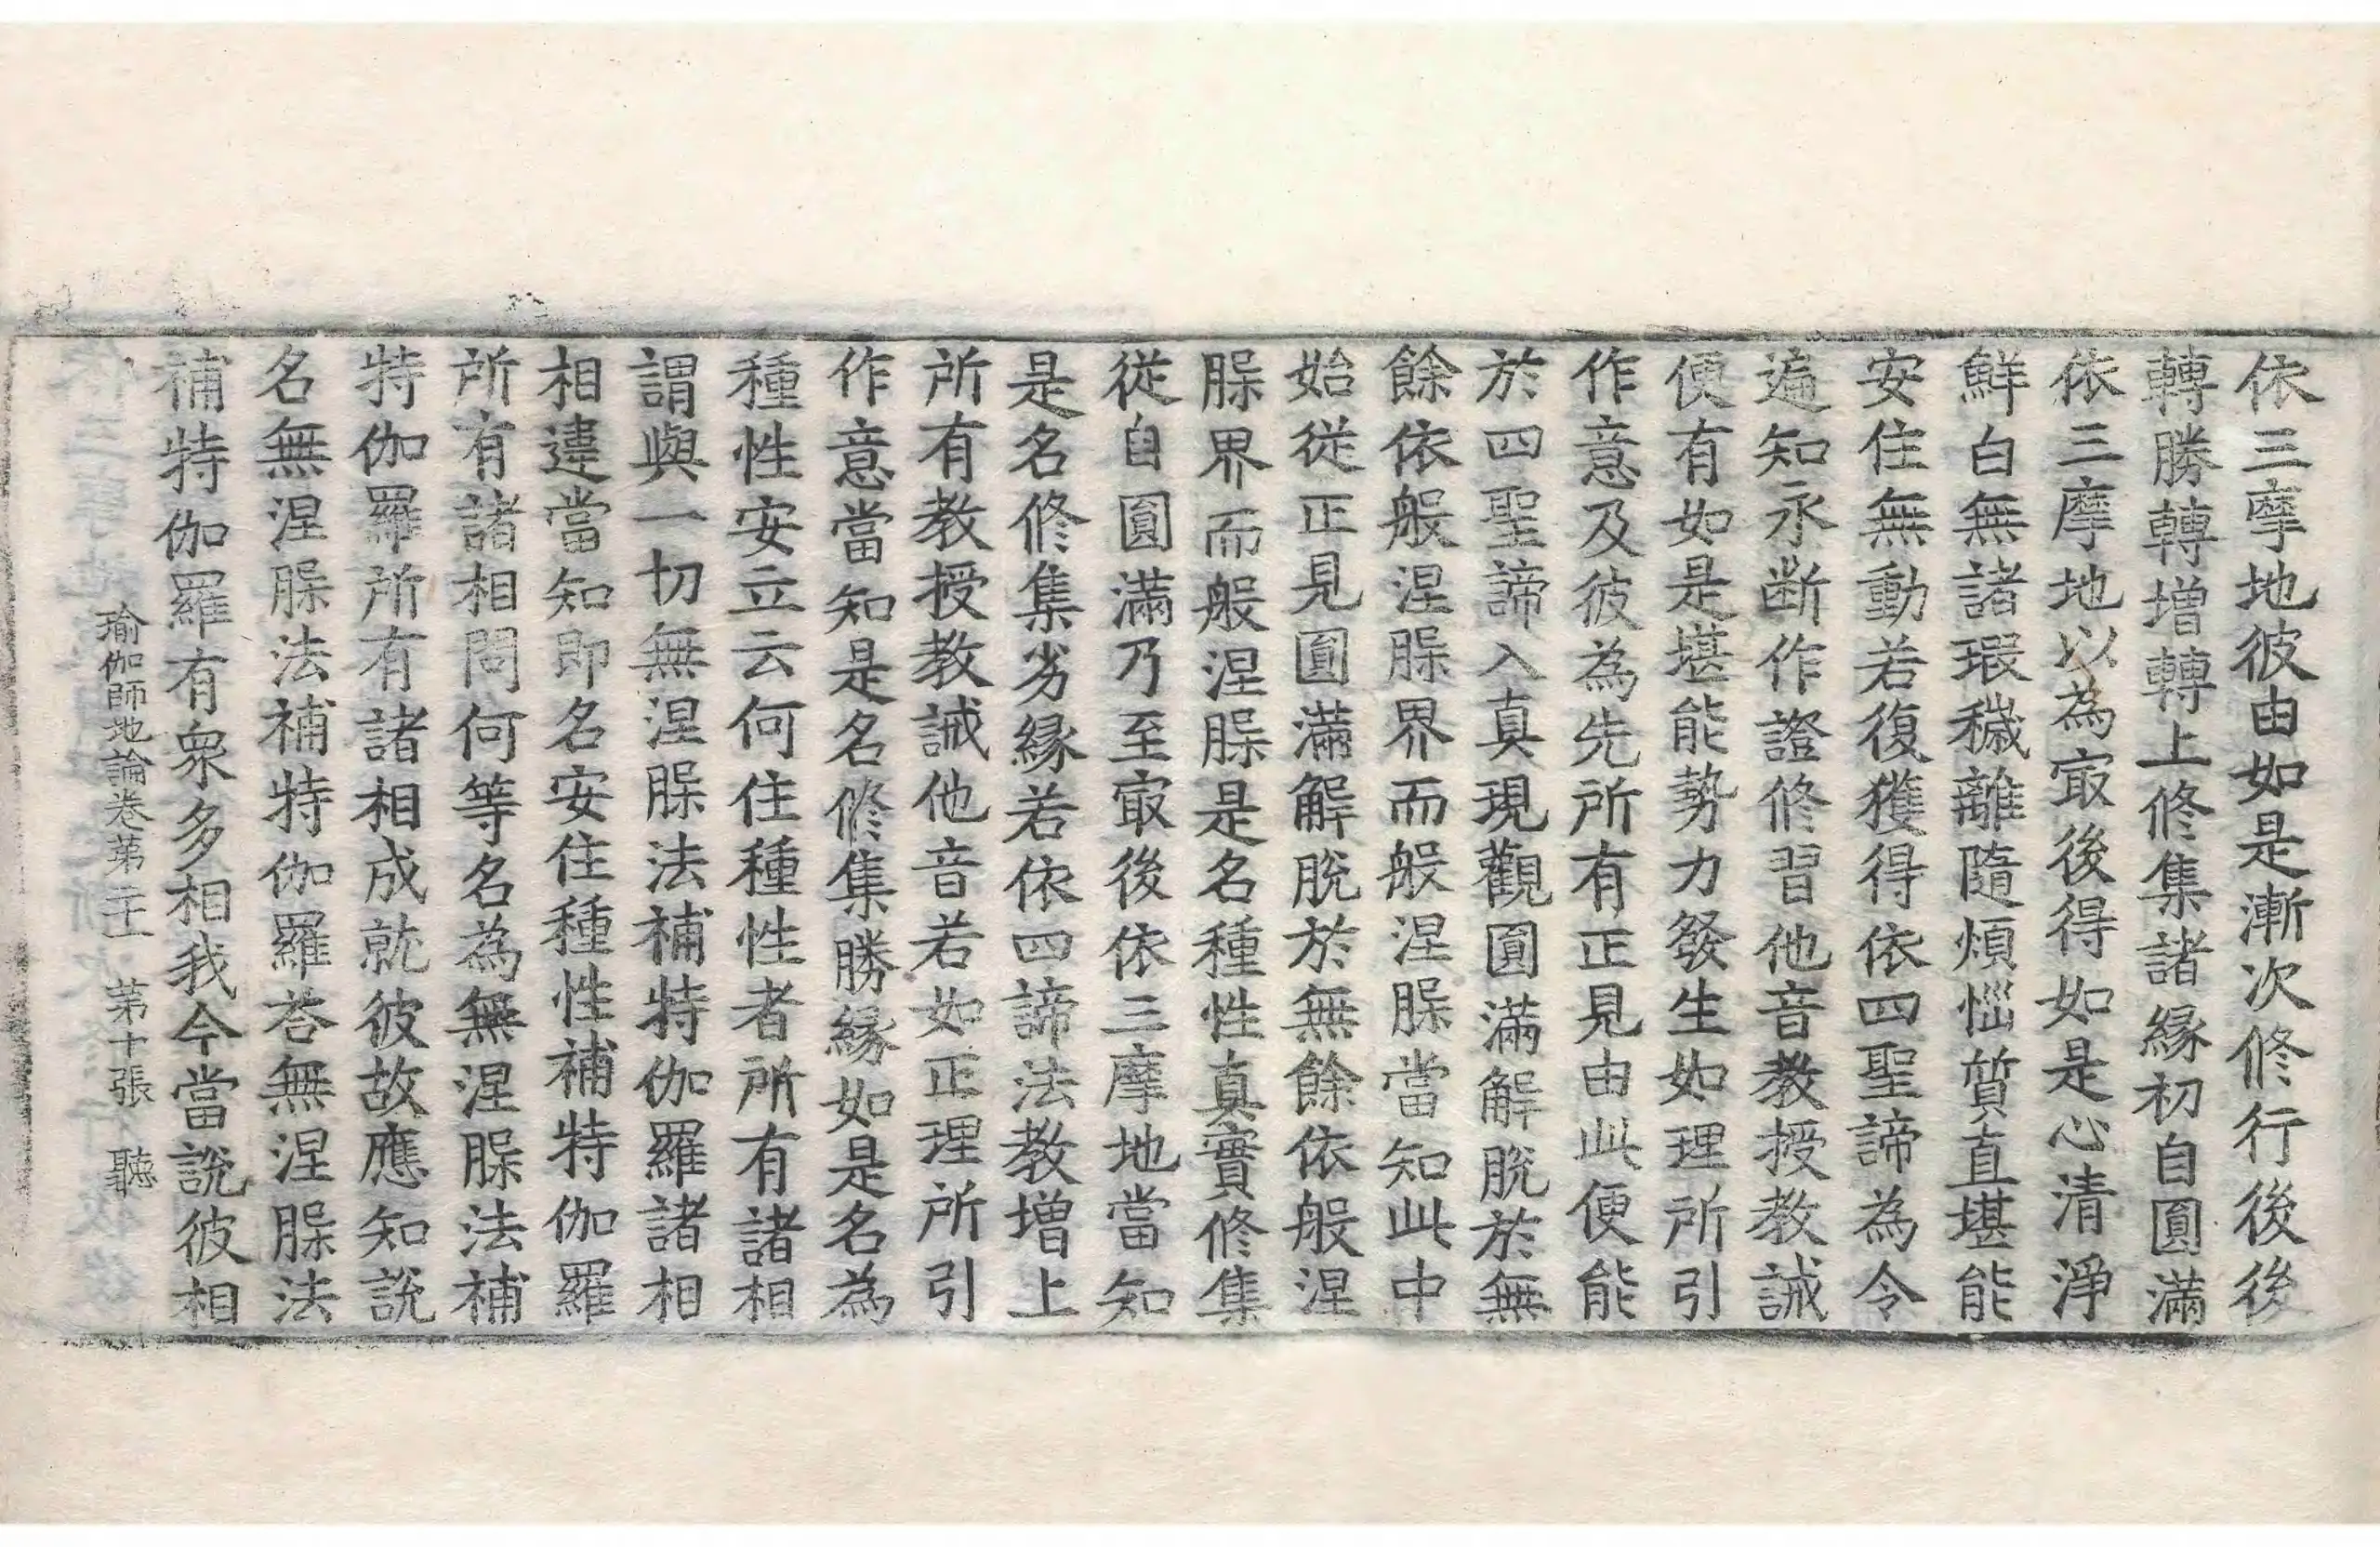 依三摩地彼由如是漸次修行後後
轉勝轉增轉上修集諸緣初自圓滿
依三摩地以為㝡後得如是心清淨
鮮白無諸瑕穢離隨煩惱質直堪能
安住無動若復獲得依四聖諦為令
遍知永断作證修習他音教授教誡
便有如是堪能勢力發生如理所引
作意及彼為先所有正見由此便能
於四聖諦入真現觀圓滿解脫於無
餘依般涅槃界而般涅槃當知此中
始從正見圓滿解脫於無餘依般涅
槃界而般涅槃是名種性真實修集
從自圓滿乃至㝡後依三摩地當知
是名修集劣緣若依四諦法教增上
所有教授教誡他音若如正理所引
作意當知是名修集勝緣如是名為
種性安立云何住種性者所有諸相
謂與一切無涅槃法補特伽羅諸相
相違當知即名安住種性補特伽羅
所有諸相問何等名為無涅槃法補
特伽羅所有諸相成就彼故應知說
名無涅槃法補特伽羅荅無涅槃法
補特伽羅有衆多相我今當說彼相
瑜伽師地論卷第二十一 第十張 聽